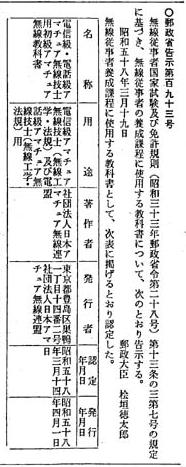 ○郵政省告示第百九十三号
無線従事者国家試験及び免許規則（昭和三十三年郵政省令第二十八号）第十三条の三第七号の規定
に基づき、無線従事者の養成課程に使用する教科書について、次のとおり告示する。
昭和五十八年三月十九日
郵政大臣　桧垣徳太郎
無線従事者の養成課程に使用する教科書として、次表に掲げるとおり認定した。
名称
用途
著作者
発行者
認定年月日
発行年月日
電信級・電話級アマチュア無線技士用初級アマチュア無線教科書
電信級アマチュア無線技士（無線工学・法規）及び電話級アマチュア無線技士（無線工学・法規）用
社団法人日本アマチュア無線連盟
東京都豊島区巣鴨一丁目十四番二号
社団法人日本アマチュア無線連盟
昭和五十八年三月十四日
昭和五十八年四月一日